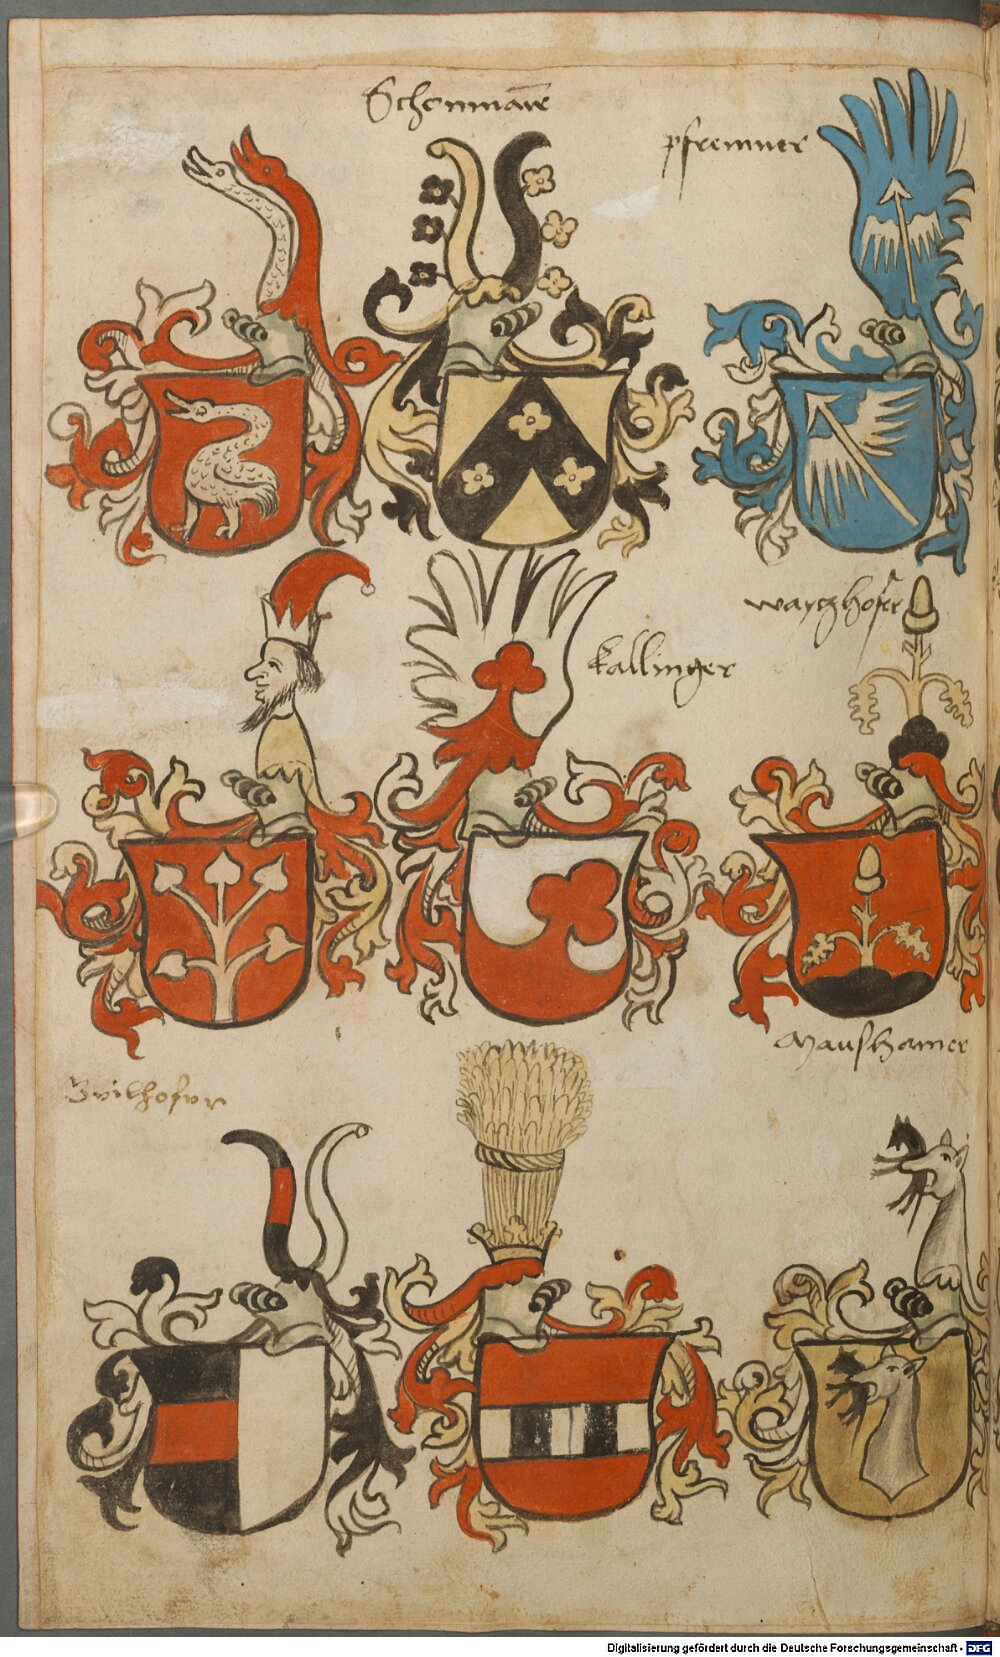 Schonmair
pfremner
wayczhofer
kallinger
Maushamer
Digitalisierung gefördert durch die Deutsche Forschungsgemeinschaft - DFG